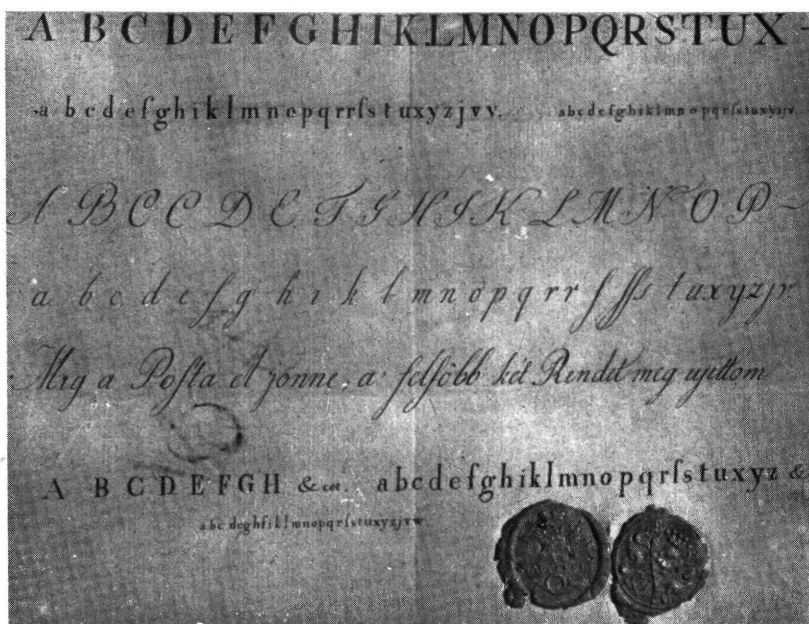 A B C D E F G H I K L M N O P Q R S T U X -
a b c d e f g h i k l m n o p q r r ſ s t u x y z j v v. a b c d e f g h i k l m n o p q r ſ s t u x y z j v
A B C C D E F G H I K L M N O P -
a b c d e f g h i k l m n o p q r r ſ ſſ s t u x y z j v
Mig a Poſta el jönne, a' felſöbb két Rendet meg ujittom
A B C D E F G H & cet. a b c d e f g h i k l m n o p q r ſ s t u x y z &
a b c d e g h f i k l m n o p q r ſ s t u x y z j v w